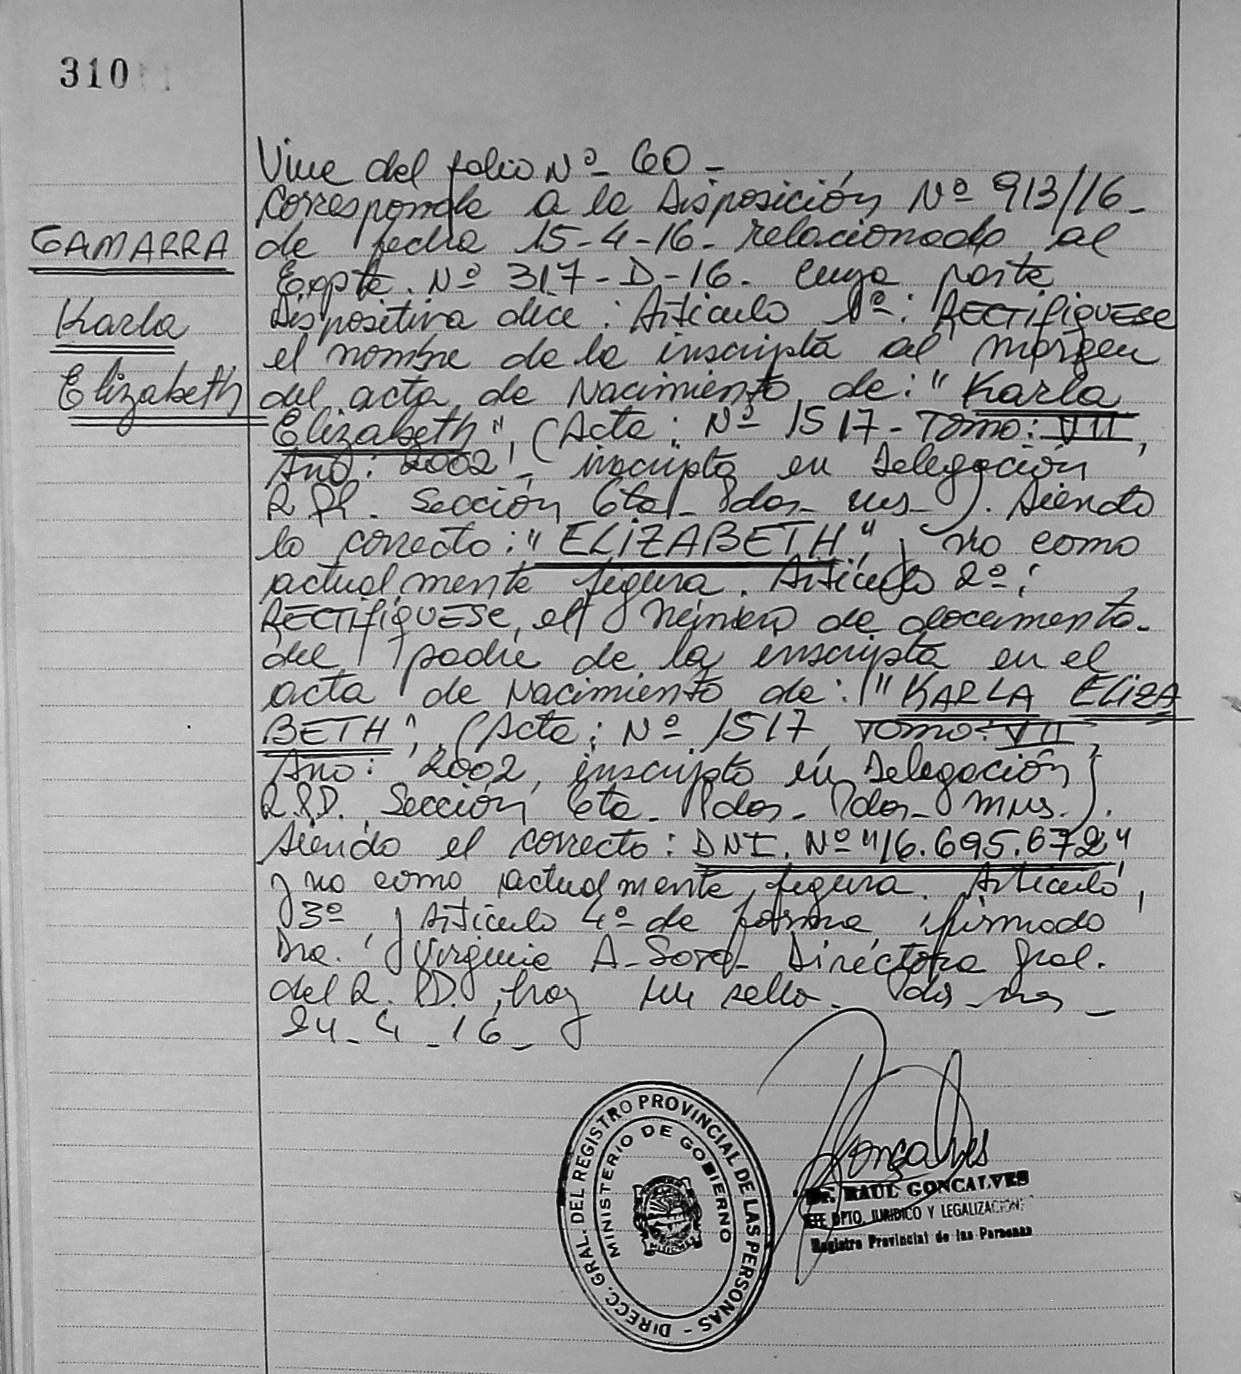 310
GAMARRA
Karla
Elizabeth
Viene del folio Nº 60 -
Corresponde a la Disposición Nº 913/16 -
de fecha 15-4-16- relacionado al
Expte. Nº 317-D-16. cuya parte
Dispositiva dice: Artículo 1º: RECTIFIQUESE
el nombre de la inscripta al margen
del acta de Nacimiento de: "Karla
Elizabeth", (Acta: Nº 1517- Tomo: VII,
Año: 2002, inscripta en Delegación
Sección 6ta. Siendo
lo correcto: "ELIZABETH" y no como
actualmente figura. Artículo 2º:
RECTIFIQUESE, el Número de documento.
del padre de la inscripta en el
acta de Nacimiento de: "KARLA ELIZA
BETH", (Acta: Nº 1517 Tomo: VII
Año: 2002, inscripto en Delegación
Sección 6ta.
Siendo el correcto: DNI. Nº "16.695.672"
y no como actualmente figura. Artículo,
3º y Artículo 4º de forma, firmado
Dra. Virginia A- Directora Gral.
del hay un sello.
24-4-16-
DIRECC. GRAL. DEL REGISTRO PROVINCIAL DE LAS PERSONAS -
MINISTERIO DE GOBIERNO
Gonçalves
Dr. RAUL GONCALVES
JEFE DPTO. JURIDICO Y LEGALIZACIONES
Registro Provincial de las Personas